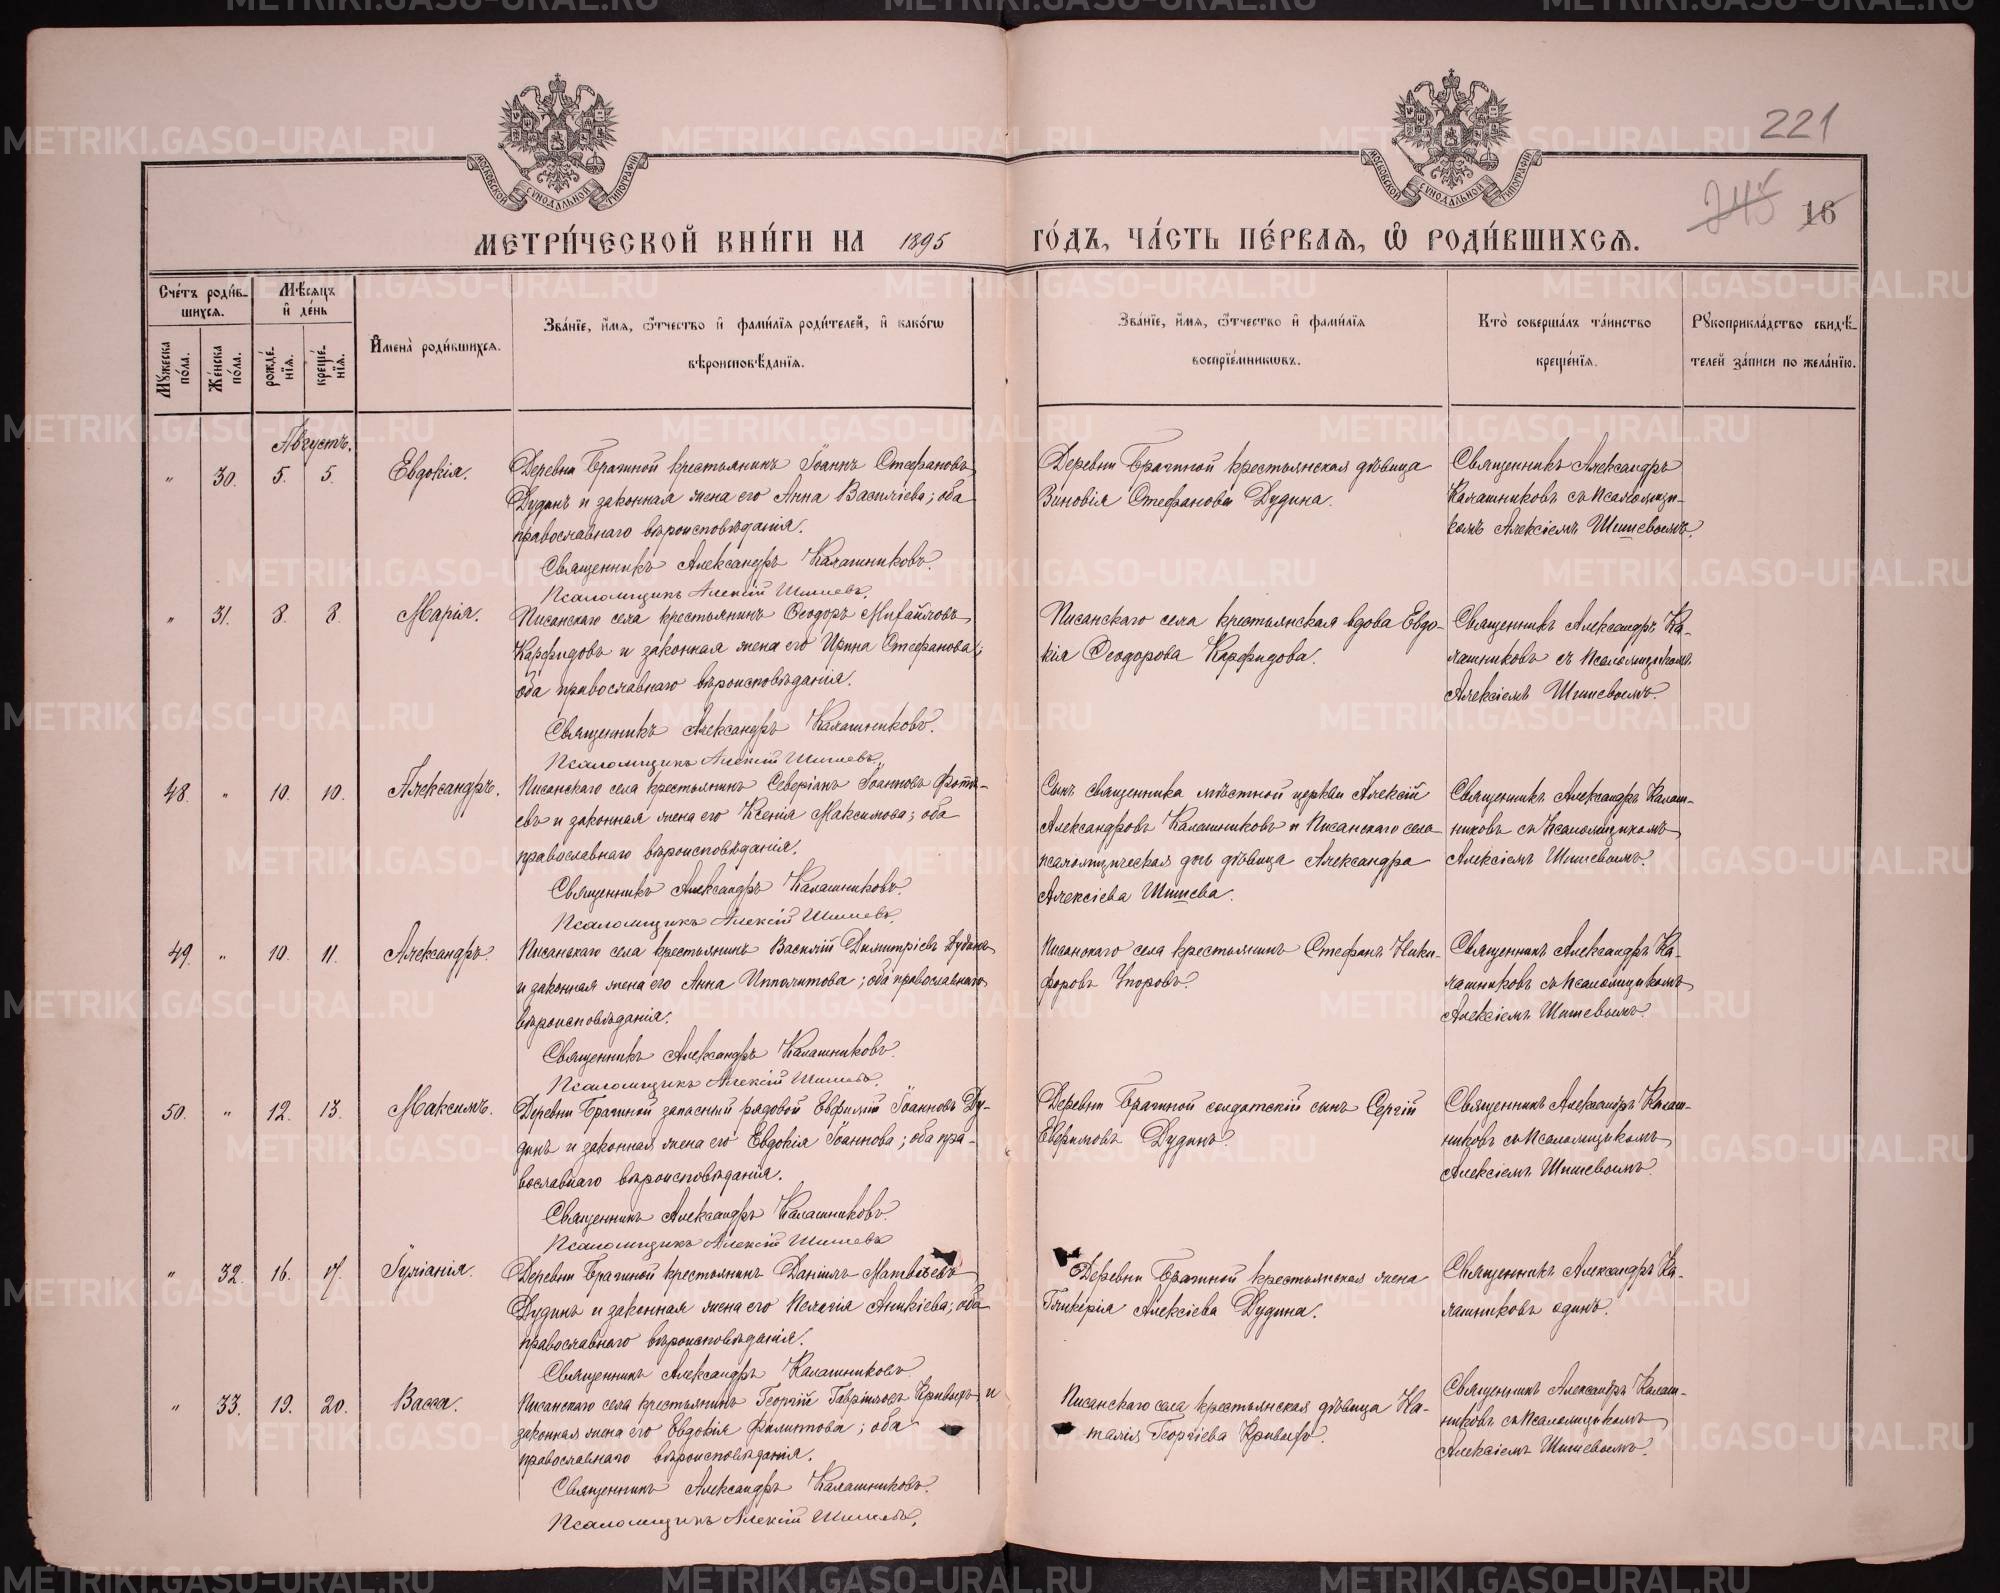 221
245 16
МОСКОВСКОЙ СУНОДАЛЬНОЙ ТИПОГРАФІИ
МОСКОВСКОЙ СУНОДАЛЬНОЙ ТИПОГРАФІИ
МЕТРИ́ЧЕСКОЙ КНИ́ГИ НА 1895 ГО́ДЪ, ЧА́СТЬ ПЕ́РВАЯ, Ѡ҆ РОДИ́ВШИХСЯ.
Сче́тъ роди́в-
шихся.
Мѣ́сяцъ
и҆ де́нь
Му́жеска по́ла.
Же́нска по́ла.
рожде́нїя.
креще́нїя.
И҆мена̀ роди́вшихся.
Зва́нїе, и҆́мя, ѻ҆́тчество и҆ фами́лїя роди́телей, и҆ како́гѡ
вѣроисповѣ́данїя.
Зва́нїе, и҆́мя, ѻ҆́тчество и҆ фами́лїя
воспрїе́мникѡвъ.
Кто̀ соверша́лъ та́инство
креще́нїя.
Рꙋкоприкла́дство свидѣ́-
телей за́писи по жела́нїю.
Августъ.
" 30. 5. 5. Евдокія.
Деревни Брагиной крестьянинъ Іоаннъ Стефановъ
Дудинъ и законная жена его Анна Василіева; оба
православнаго вѣроисповѣданія.
Священникъ Александръ Калашниковъ.
Псаломщикъ Алексій Шишевъ.
Деревни Брагиной крестьянская дѣвица
Зиновія Стефанова Дудина.
Священникъ Александръ
Калашниковъ съ псаломщи-
комъ Алексіемъ Шишевымъ.
" 31. 8. 8. Марія.
Писанскаго села крестьянинъ Ѳеодоръ Михайловъ
Карфидовъ и законная жена его Ирина Стефанова;
оба православнаго вѣроисповѣданія.
Священникъ Александръ Калашниковъ.
Псаломщикъ Алексій Шишевъ.
Писанскаго села крестьянская вдова Евдо-
кія Ѳеодорова Карфидова.
Священникъ Александръ Ка-
лашниковъ съ псаломщикомъ
Алексіемъ Шишевымъ.
48. " 10. 10. Александръ.
Писанскаго села крестьянинъ Северіанъ Іоанновъ Фоти-
евъ и законная жена его Ксенія Максимова; оба
православнаго вѣроисповѣданія.
Священникъ Александръ Калашниковъ.
Псаломщикъ Алексій Шишевъ.
Сынъ священника мѣстной церкви Алексій
Александровъ Калашниковъ и Писанскаго села
псаломщическая дочь дѣвица Александра
Алексіева Шишева.
Священникъ Александръ Калаш-
никовъ съ псаломщикомъ
Алексіемъ Шишевымъ.
49. " 10. 11. Александръ.
Писанскаго села крестьянинъ Василій Димитріевъ Дудинъ
и законная жена его Анна Ипполитова; оба православнаго
вѣроисповѣданія.
Священникъ Александръ Калашниковъ.
Псаломщикъ Алексій Шишевъ.
Писанскаго села крестьянинъ Стефанъ Ники-
форовъ Упоровъ.
Священникъ Александръ Ка-
лашниковъ съ псаломщикомъ
Алексіемъ Шишевымъ.
50. " 12. 13. Максимъ.
Деревни Брагиной запасный рядовой Евфимій Іоанновъ Ду-
динъ и законная жена его Евдокія Іоаннова; оба пра-
вославнаго вѣроисповѣданія.
Священникъ Александръ Калашниковъ.
Псаломщикъ Алексій Шишевъ
Деревни Брагиной солдатскій сынъ Сергій
Евфимовъ Дудинъ.
Священникъ Александръ Калаш-
никовъ съ псаломщикомъ
Алексіемъ Шишевымъ.
" 32. 16. 17. Іуліанія.
Деревни Брагиной крестьянинъ Даніилъ Матвѣевъ
Дудинъ и законная жена его Пелагія Аникіева; оба
православнаго вѣроисповѣданія.
Священникъ Александръ Калашниковъ
Деревни Брагиной крестьянская жена
Гликерія Алексіева Дудина.
Священникъ Александръ Ка-
лашниковъ одинъ.
" 33. 19. 20. Васса.
Писанскаго села крестьянинъ Георгій Гавріиловъ Кривыхъ и
законная жена его Евдокія Филиппова; оба
православнаго вѣроисповѣданія.
Священникъ Александръ Калашниковъ.
Псаломщикъ Алексій Шишевъ.
Писанскаго села крестьянская дѣвица На-
талія Георгіева Кривыхъ.
Священникъ Александръ Калаш-
никовъ съ псаломщикомъ
Алексіемъ Шишевымъ.
METRIKI.GASO-URAL.RU